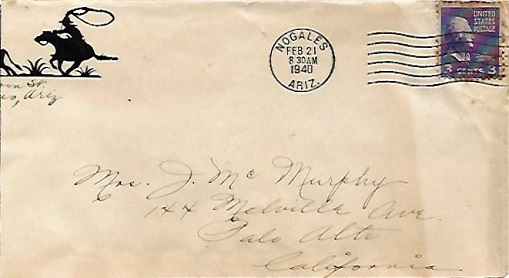 St.
Ariz
NOGALES
FEB 21
8 30 AM
1940
ARIZ.
UNITED STATES
POSTAGE
3 CENTS 3
Mrs. J. Mc Murphy
144 Melville Ave.
Palo Alto
California